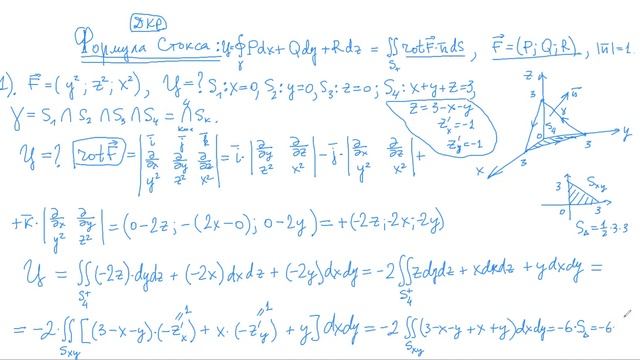 ДКР
Формула Стокса: Ц=∮_γ Pdx+Qdy+Rdz = ∬_{S+} rotF⃗·n⃗dS, F⃗=(P;Q;R), |n⃗|=1.
1). F⃗=(y²; z²; x²), Ц=? S₁:x=0, S₂:y=0, S₃:z=0; S₄: x+y+z=3,
γ=S₁∩S₂∩S₃∩S₄= ∩ Sₖ.
z=3-x-y
z'ₓ=-1
z'_y=-1
Ц=? rotF⃗ = |i⃗ j⃗ k⃗; ∂/∂x ∂/∂y ∂/∂z; y² z² x²| = i⃗·|∂/∂y ∂/∂z; z² x²| - j⃗·|∂/∂x ∂/∂z; y² x²| +
+k⃗·|∂/∂x ∂/∂y; y² z²| = (0-2z; -(2x-0); 0-2y) = +(-2z;-2x;-2y)
z
3
n⃗
γ
S₄
0
3
3
y
x
3
S_xy
3
S_Δ=½·3·3
Ц = ∬_{S₄+} (-2z)·dydz + (-2x)dxdz + (-2y)dxdy = -2∬_{S₄+} zdydz + xdxdz + ydxdy =
= -2·∬_{S_xy} [(3-x-y)·(-z'ₓ) + x·(-z'_y) + y]dxdy = -2∬_{S_xy} (3-x-y+x+y)dxdy=-6·S_Δ=-6·
1
1